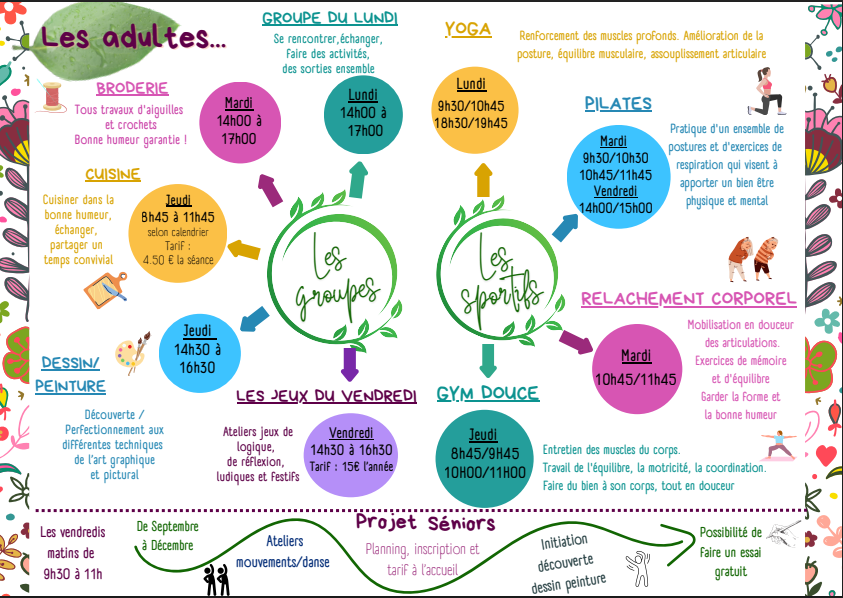 Les adultes...
GROUPE DU LUNDI
Se rencontrer,échanger,
Faire des activités,
des sorties ensemble
Lundi
14h00 à
17h00
BRODERIE
Tous travaux d'aiguilles
et crochets
Bonne humeur garantie !
Mardi
14h00 à
17h00
CUISINE
Cuisiner dans la
bonne humeur,
échanger,
partager un
temps convivial
Jeudi
8h45 à 11h45
selon calendrier
Tarif :
4.50 € la séance
Les
groupes
DESSIN/
PEINTURE
Jeudi
14h30 à
16h30
Découverte /
Perfectionnement aux
différentes techniques
de l'art graphique
et pictural
LES JEUX DU VENDREDI
Ateliers jeux de
logique,
de réflexion,
ludiques et festifs
Vendredi
14h30 à 16h30
Tarif : 15€ l'année
YOGA
Renforcement des muscles profonds. Amélioration de la
posture, équilibre musculaire, assouplissement articulaire
Lundi
9h30/10h45
18h30/19h45
PILATES
Mardi
9h30/10h30
10h45/11h45
Vendredi
14h00/15h00
Pratique d'un ensemble de
postures et d'exercices de
respiration qui visent à
apporter un bien être
physique et mental
Les
sportifs
RELACHEMENT CORPOREL
Mardi
10h45/11h45
Mobilisation en douceur
des articulations.
Exercices de mémoire
et d'équilibre
Garder la forme et
la bonne humeur
GYM DOUCE
Jeudi
8h45/9H45
10H00/11H00
Entretien des muscles du corps.
Travail de l'équilibre, la motricité, la coordination.
Faire du bien à son corps, tout en douceur
Projet Séniors
Les vendredis
matins de
9h30 à 11h
De Septembre
à Décembre
Ateliers
mouvements/danse
Planning, inscription et
tarif à l'accueil
Initiation
découverte
dessin peinture
Possibilité de
faire un essai
gratuit